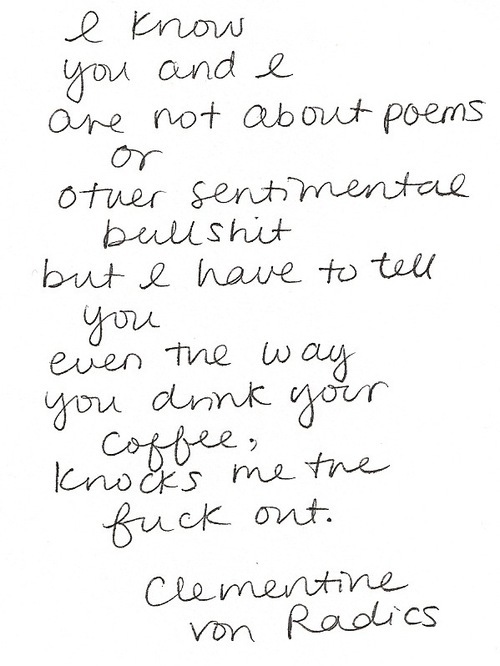 I know
you and I
are not about poems
or
other sentimental
bullshit
but I have to tell
you
even the way
you drink your
coffee,
knocks me the
fuck out.
Clementine
von Radics